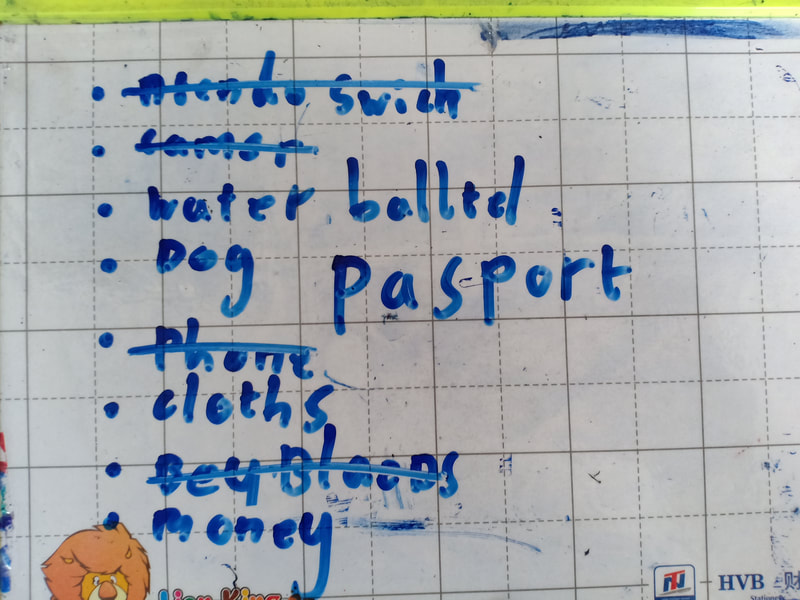 • niendo swich
• camer
• water balltd
• Dog
Pasport
• Phone
• cloths
• BeyBlaDDs
• money
Lion King
HVB